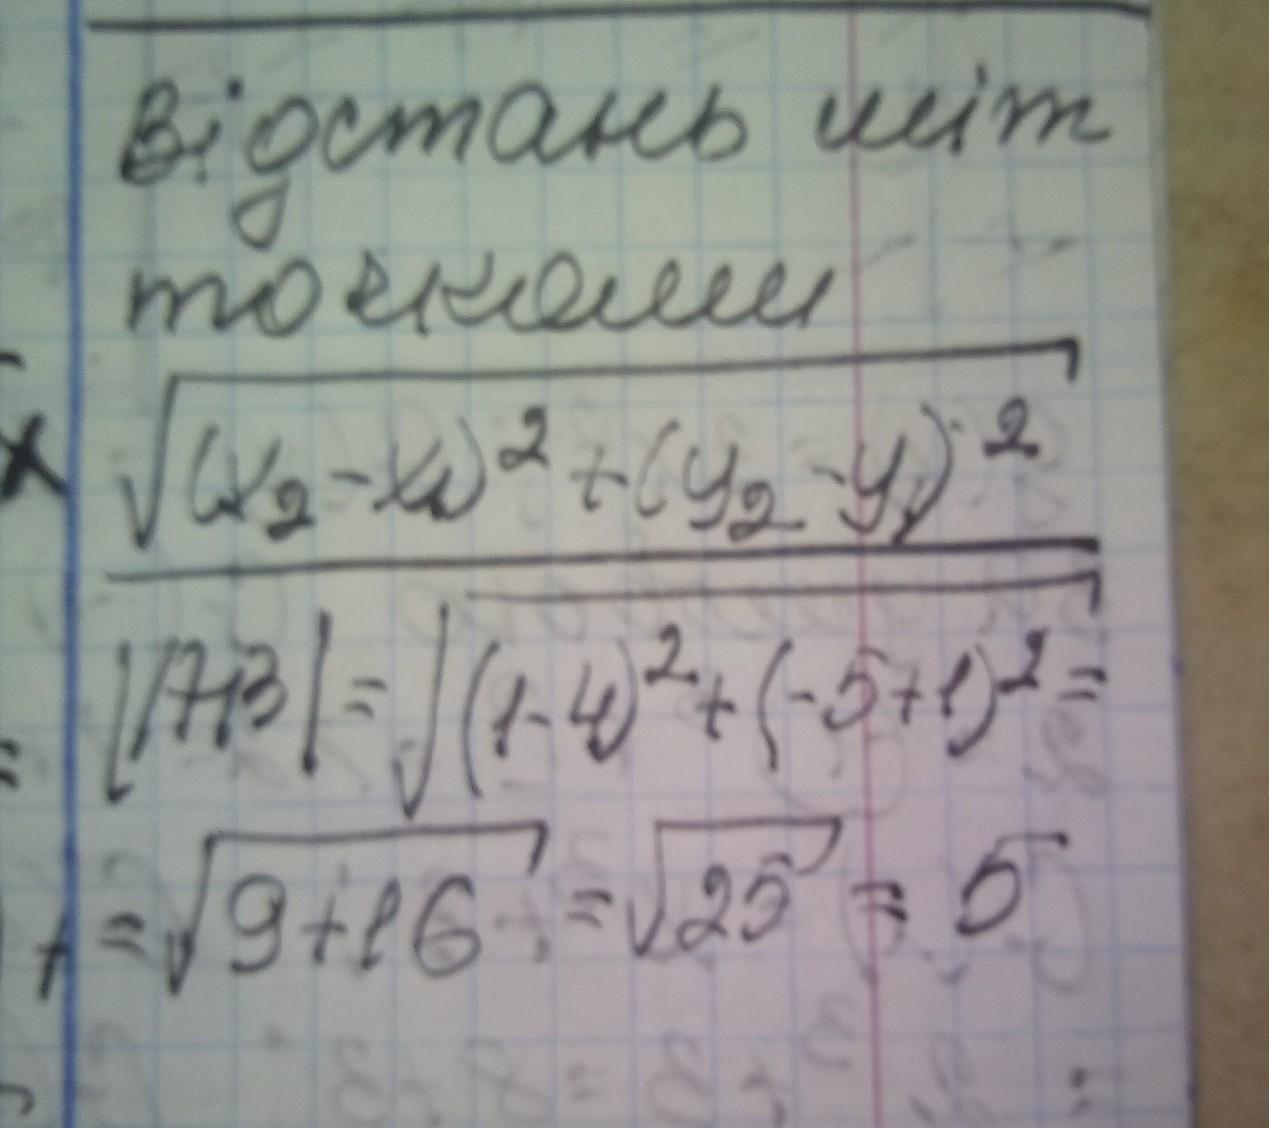 Відстань між
точками
√(x₂-x₁)² + (y₂-y₁)²
|AB| = √(1-4)² + (-5+1)² =
= √9+16 = √25 = 5